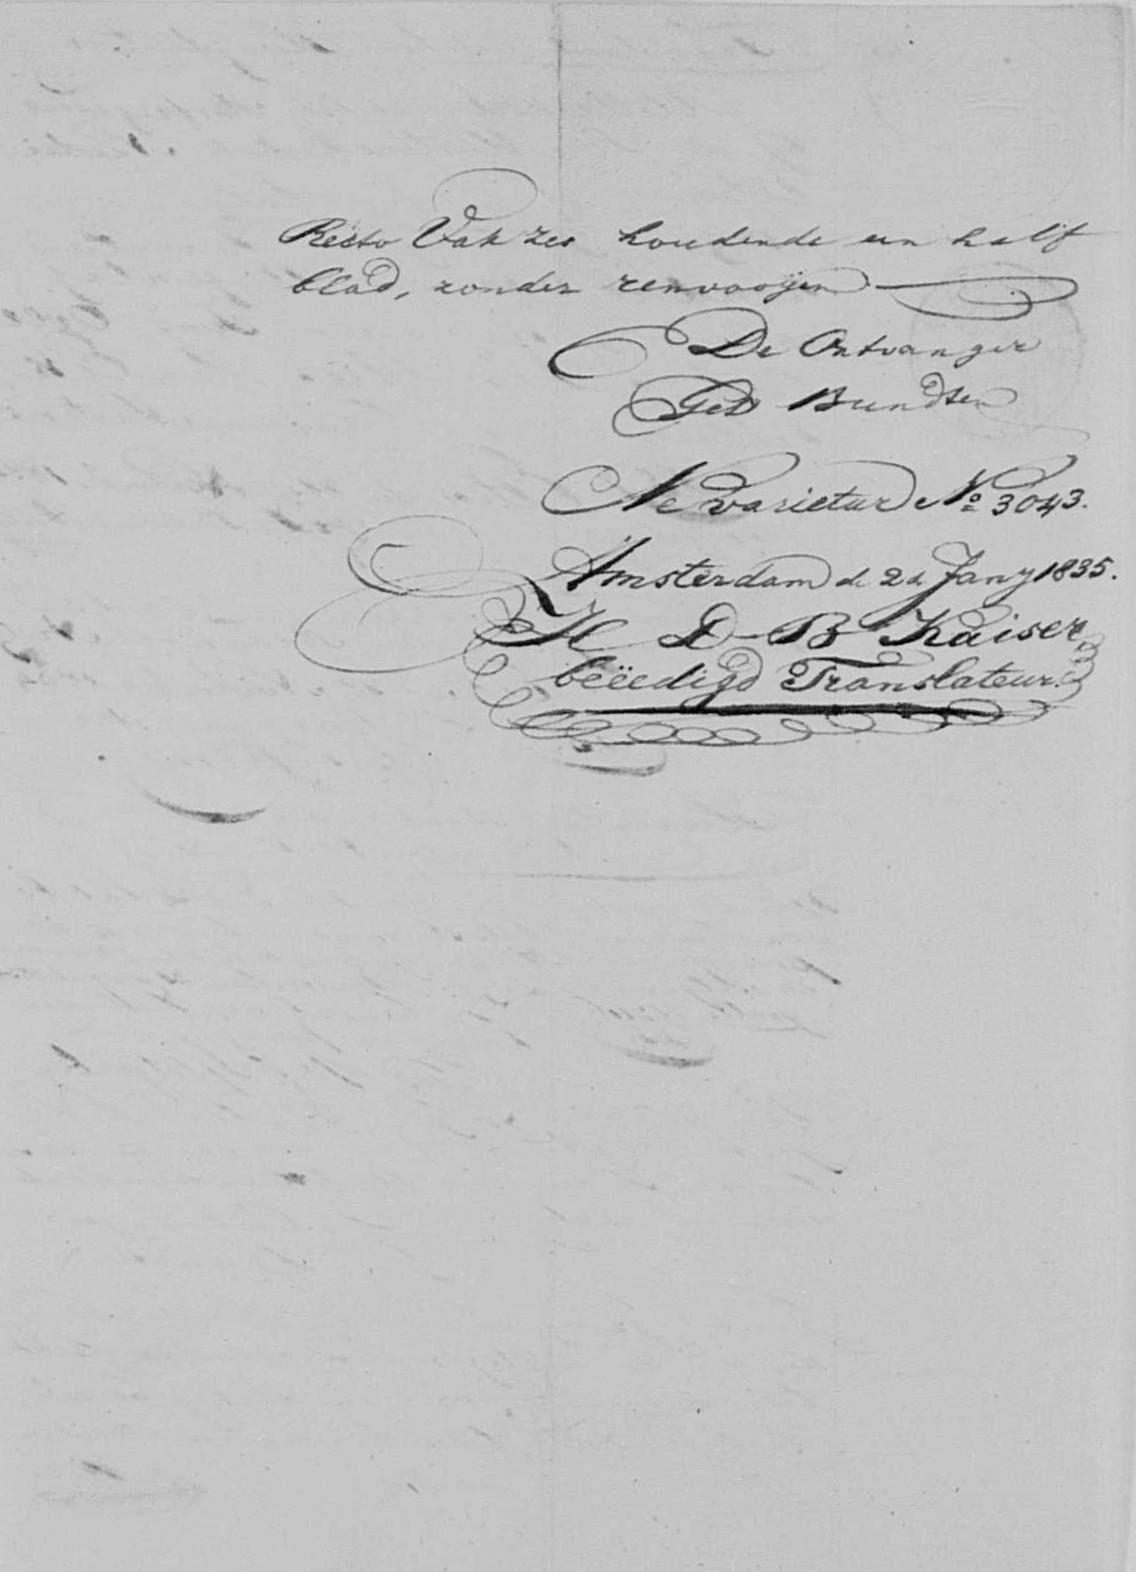 Recto Vak zes houdende een half
blad, zonder renvooijen
De Ontvanger
Get Bundsen
Ne varietur No 3043.
Amsterdam de 2d Jany 1835.
H D B Kaiser,
beëedigd Translateur.